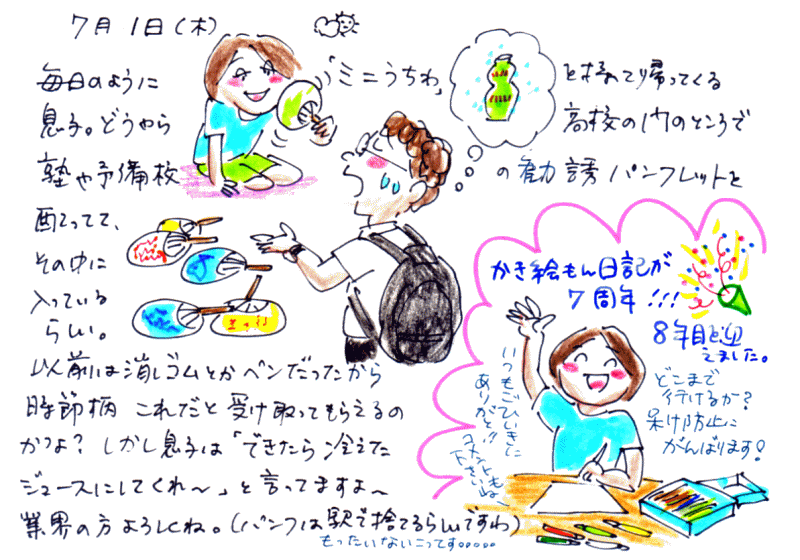 7月1日(木)
毎日のように「ミニうちわ」を持って帰ってくる
息子。どうやら 高校の門のところで
塾や予備校の勧誘パンフレットと
配ってて、
その中に
入っている
らしい。
以前は消しゴムとかペンだったから
時節柄 これだと受け取ってもらえるの
かつよ?しかし息子は「できたら冷えた
ジュースにしてくれ〜」と言ってますよ〜
業界の方よろしくね。(パンフは駅で捨てるらしいですわ)
もったいないこってす.....
かき絵もん日記が
7周年!!!
8年目を迎
えました。
どこまで
行けるか?
呆け防止に
がんばります!
いつもごひいきに
ありがと!!
下さい